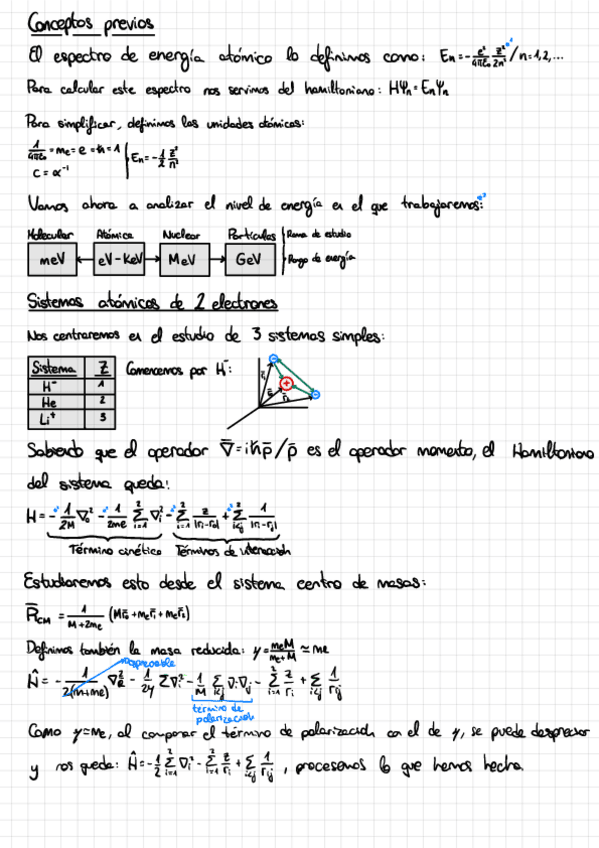 Conceptos previos
El espectro de energía atómico lo definimos como: En = - e²/4πε₀ z²/2n² / n=1,2,...
Para calcular este espectro nos servimos del hamiltoniano: HΨn = EnΨn
Para simplificar, definimos las unidades atómicas:
1/4πε₀ = me = e = ħ = 1 | En = - 1/2 z²/n²
C = α⁻¹
Vamos ahora a analizar el nivel de energía en el que trabajaremos:
Molecular Atómica Nuclear Partículas Rama de estudio
meV eV-KeV MeV GeV Rango de energía
Sistemas atómicos de 2 electrones
Nos centraremos en el estudio de 3 sistemas simples:
Sistema Z
H⁻ 1
He 2
Li⁺ 3
Comencemos por H⁻:
Sabiendo que el operador ∇̄ = iħp̄ / p̄ es el operador momento, el Hamiltoniano
del sistema queda:
H = - 1/2M ∇₀² - 1/2me Σ(i=1→2) ∇i² - Σ(i=1→2) z/|ri-r0| + Σ(i<j→2) 1/|ri-rj|
Término cinético Términos de interacción
Estudiaremos esto desde el sistema centro de masas:
R̄CM = 1/(M+2me) (Mr̄₀ + mer̄₁ + mer̄₂)
Definimos también la masa reducida: y = meM/(me+M) ≃ me
despreciable
Ĥ = - 1/2(m+me) ∇R² - 1/2y Σ∇i² - 1/M Σ(i<j) ∇i·∇j - Σ(i=1→2) z/ri + Σ(i<j) 1/rij
término de
polarización
Como y≃me, al comparar el término de polarización con el de y, se puede despreciar
y nos queda: Ĥ = - 1/2 Σ(i=1→2) ∇i² - Σ(i=1→2) z/ri + Σ(i<j) 1/rij , procesemos lo que hemos hecho.